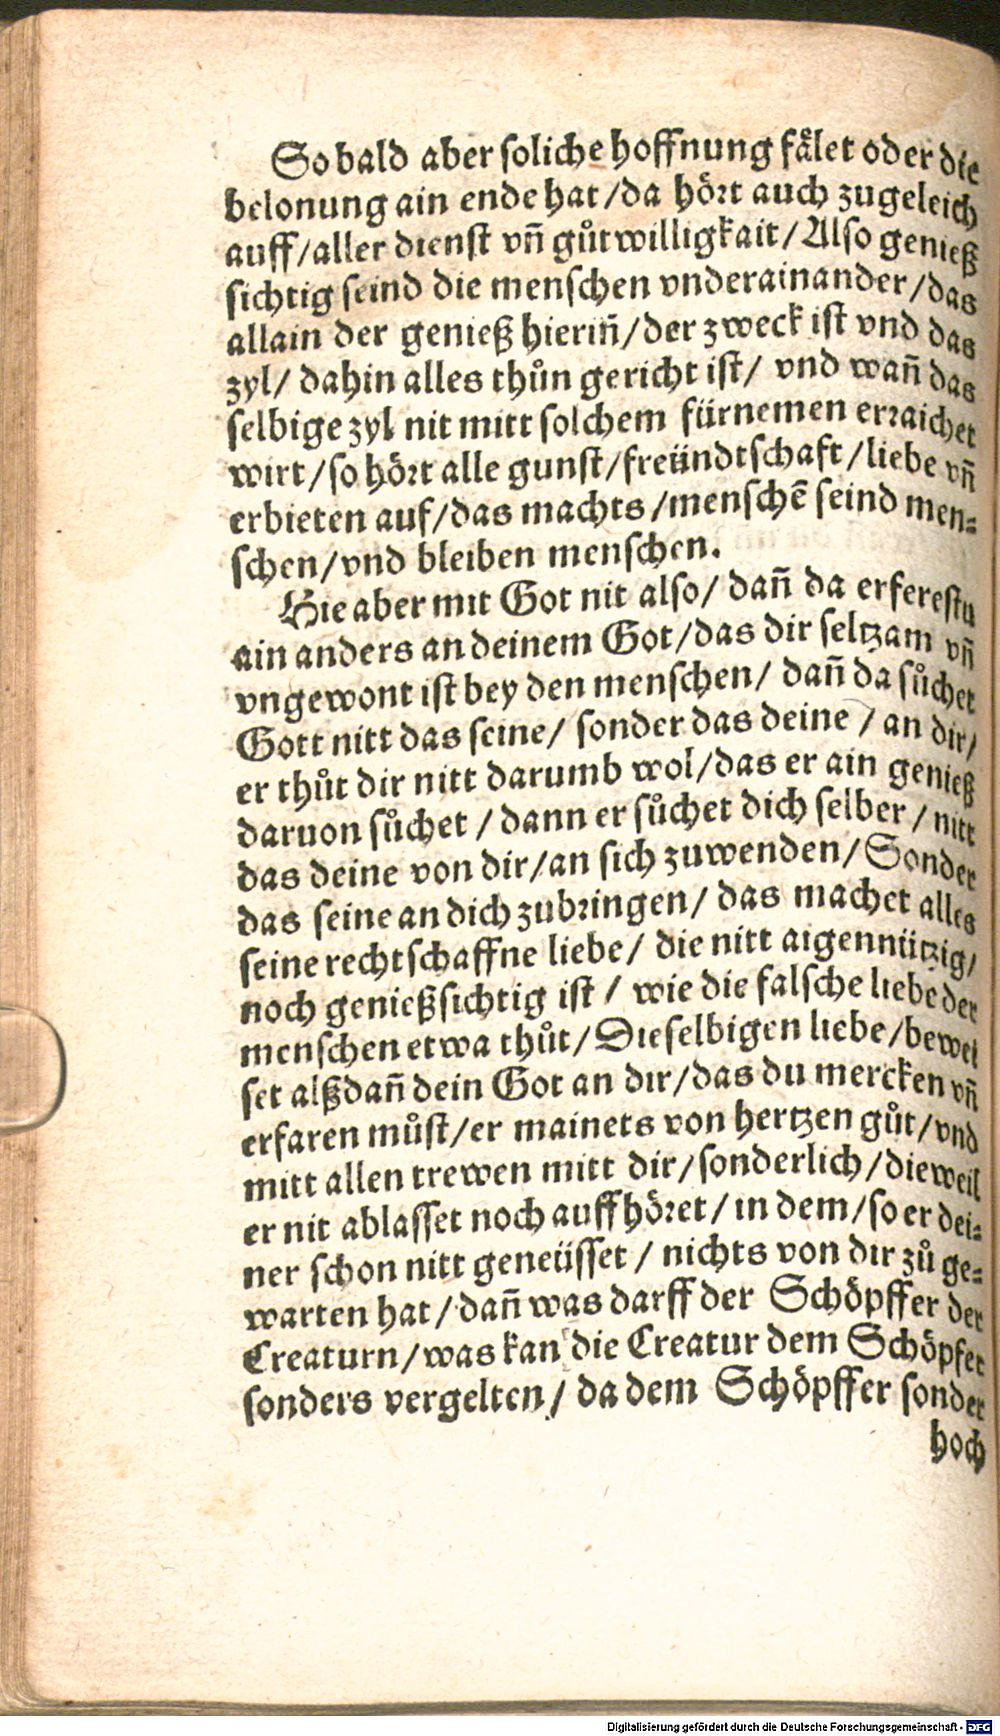 So bald aber soliche hoffnung fålet oder die
belonung ain ende hat/da hört auch zugeleich
auff/aller dienst vñ gůtwilligkait/Also genieß
sichtig seind die menschen vnderainander/das
allain der genieß hieriñ/der zweck ist vnd das
zyl/ dahin alles thůn gericht ist/ vnd wañ das
selbige zyl nit mitt solchem fürnemen erraichet
wirt/so hört alle gunst/freündtschaft/liebe vñ
erbieten auf/das machts/menschẽ seind men⸗
schen/vnd bleiben menschen.
Hie aber mit Got nit also/ dañ da erferestu
ain anders an deinem Got/das dir seltzam vñ
vngewont ist bey den menschen/ dañ da sůchet
Gott nitt das seine/ sonder das deine / an dir/
er thůt dir nitt darumb wol/das er ain genieß
daruon sůchet / dann er sůchet dich selber / nitt
das deine von dir/an sich zuwenden/Sonder
das seine an dich zubringen/ das machet alles
seine rechtschaffne liebe/ die nitt aigennützig/
noch genießsichtig ist / wie die falsche liebe der
menschen etwa thůt/Dieselbigen liebe/bewei
set alßdañ dein Got an dir/das du mercken vñ
erfaren můst/er mainets von hertzen gůt/vnd
mitt allen trewen mitt dir/sonderlich/dieweil
er nit ablasset noch auffhöret/ in dem/so er dei⸗
ner schon nitt geneüsset / nichts von dir zů ge⸗
warten hat/dañ was darff der Schöpffer der
Creaturn/was kan die Creatur dem Schöpfer
sonders vergelten/ da dem Schöpffer sonder
hoch
Digitalisierung gefördert durch die Deutsche Forschungsgemeinschaft - DFG